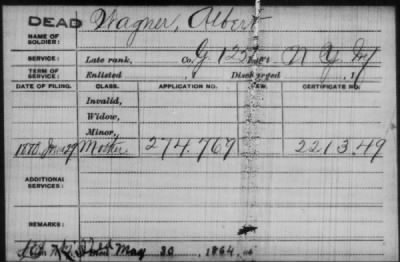 DEAD Wagner, Albert
NAME OF SOLDIER:
SERVICE: Late rank, Co. G, 125 Reg't N. Y. Inf
TERM OF SERVICE: Enlisted , 1 Discharged , 1
DATE OF FILING. CLASS. APPLICATION NO. LAW. CERTIFICATE NO.
Invalid,
Widow,
Minor,
1880, 29 Mother 274.767 221349
ADDITIONAL SERVICES:
REMARKS:
Died May 30, 1864,